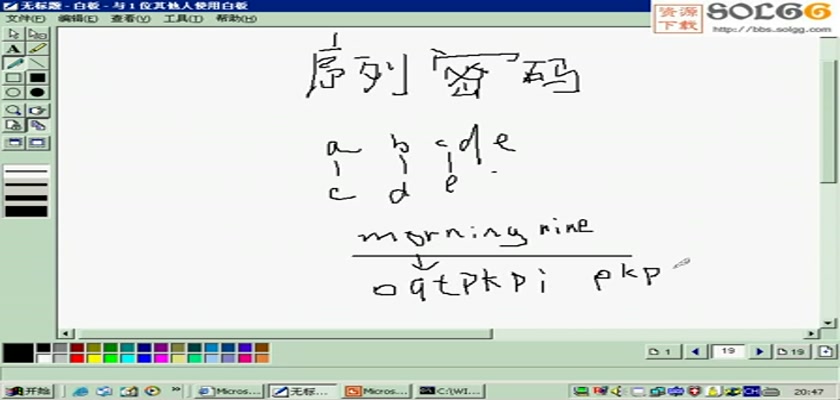 无标题 - 白板 - 与 1 位其他人使用白板
文件(F) 编辑(E) 查看(V) 工具(T) 帮助(H)
资源下载 SOLGG
http://bbs.solgg.com
序列密码
a b c d e
c d e
morning nine
oqtpkpi pkp
1 19 19
开始 Micros... 无标... Micros... C:\WI... CH 20:47